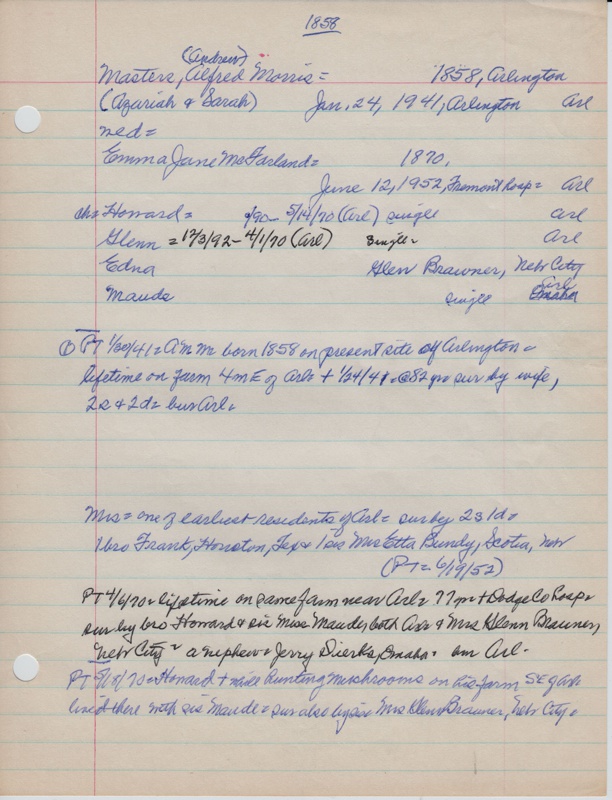 1858
(Andrew)
Masters, Alfred Morris = 1858, Arlington
(Azariah & Sarah) Jan. 24, 1941, Arlington Arl
med =
Emma Jane McFarland = 1870,
June 12, 1952, Fremont Hosp = Arl
ch = Howard = 1/90 - 5/14/70 (Arl) single Arl
Glenn = 12/3/92 - 4/1/70 (Arl) single = Arl
Edna Glen Brawner, Nebr City
Maude single Omaha Arl
① PT 1/30/41 = A M M born 1858 on present site of Arlington =
lifetime on farm 4 m E of Arl = + 1/24/41 = @ 82 yr = sur by wife,
2 s & 2 d = bur Arl =
Mrs = one of earliest residents of Arl = sur by 2 s 1 d =
1 bro Frank, Houston, Tex & 1 sis Mrs Etta Bundy, Scotia, Nebr
(PT = 6/19/52)
PT 4/6/70 = lifetime on same farm near Arl = 77 yr = + Dodge Co Hosp =
sur by bro Howard & sis Miss Maude, both Arl & Mrs Glenn Brawner,
Nebr City = a nephew = Jerry Dierks, Omaha = bur Arl =
PT = Howard + while hunting mushrooms on his farm SE of Arl
lived there with sis Maude = sur also by sis Mrs Glenn Brawner, Nebr City =